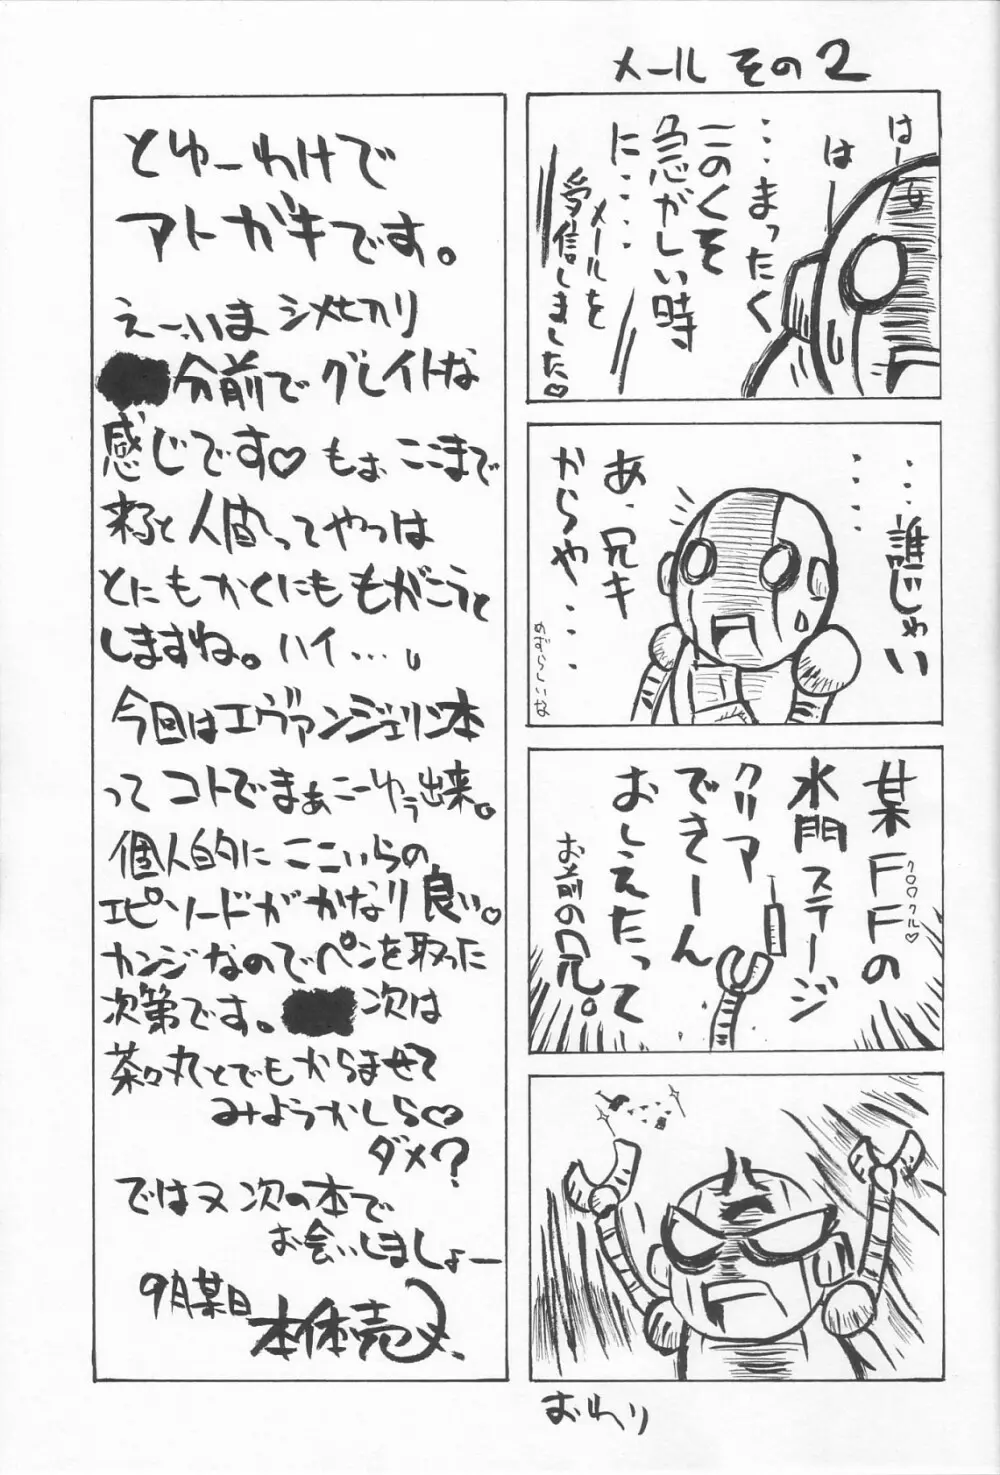 メール その2
はーっ
はー
…まったく
このくそ
急がしい時
に‥‥
メールを
受信しました♡
…誰じゃい
‥‥
あ、兄キ
からや‥‥
めずらしいな
某FFの
ク○○クル♡
水門ステージ
クリア
できーん
おしえたって
お前の兄。
おわり
とゆーわけで
アトガキです。
えーいま シメ切り
分前で グレイトな
感じです♡ もぉ ここまで
来ると 人間ってやつは
とにもかくにも もがこうと
しますね。ハイ…。
今回はエヴァンジェリン本
って コトで まぁ こーゆう出来。
個人的に ここいらの
エピソードが かなり 良い♡
カンジなのでペンを取った
次第です。 次は
茶々丸とでもからませて
みようかしら♡
ダメ?
ではヌ 次の本で
お会いしましょー
9月某日
本体売